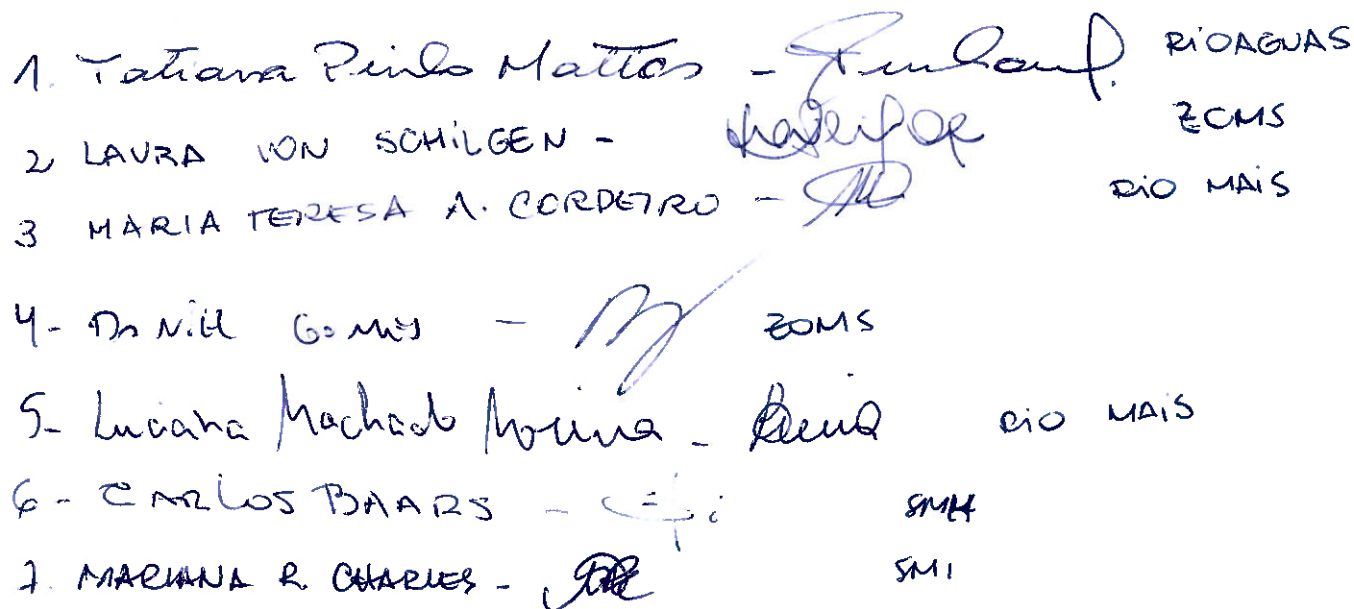 1. Tatiana Pinto Mattos - RIOAGUAS
2 LAURA VON SCHILGEN - ZCMS
3 MARIA TERESA A. CORDEIRO - RIO MAIS
4- Daniel Gomes - ZOMS
5- Luciana Machado - RIO MAIS
6- CARLOS BAARS - SMH
7. MARIANA R CHARLES - SMI